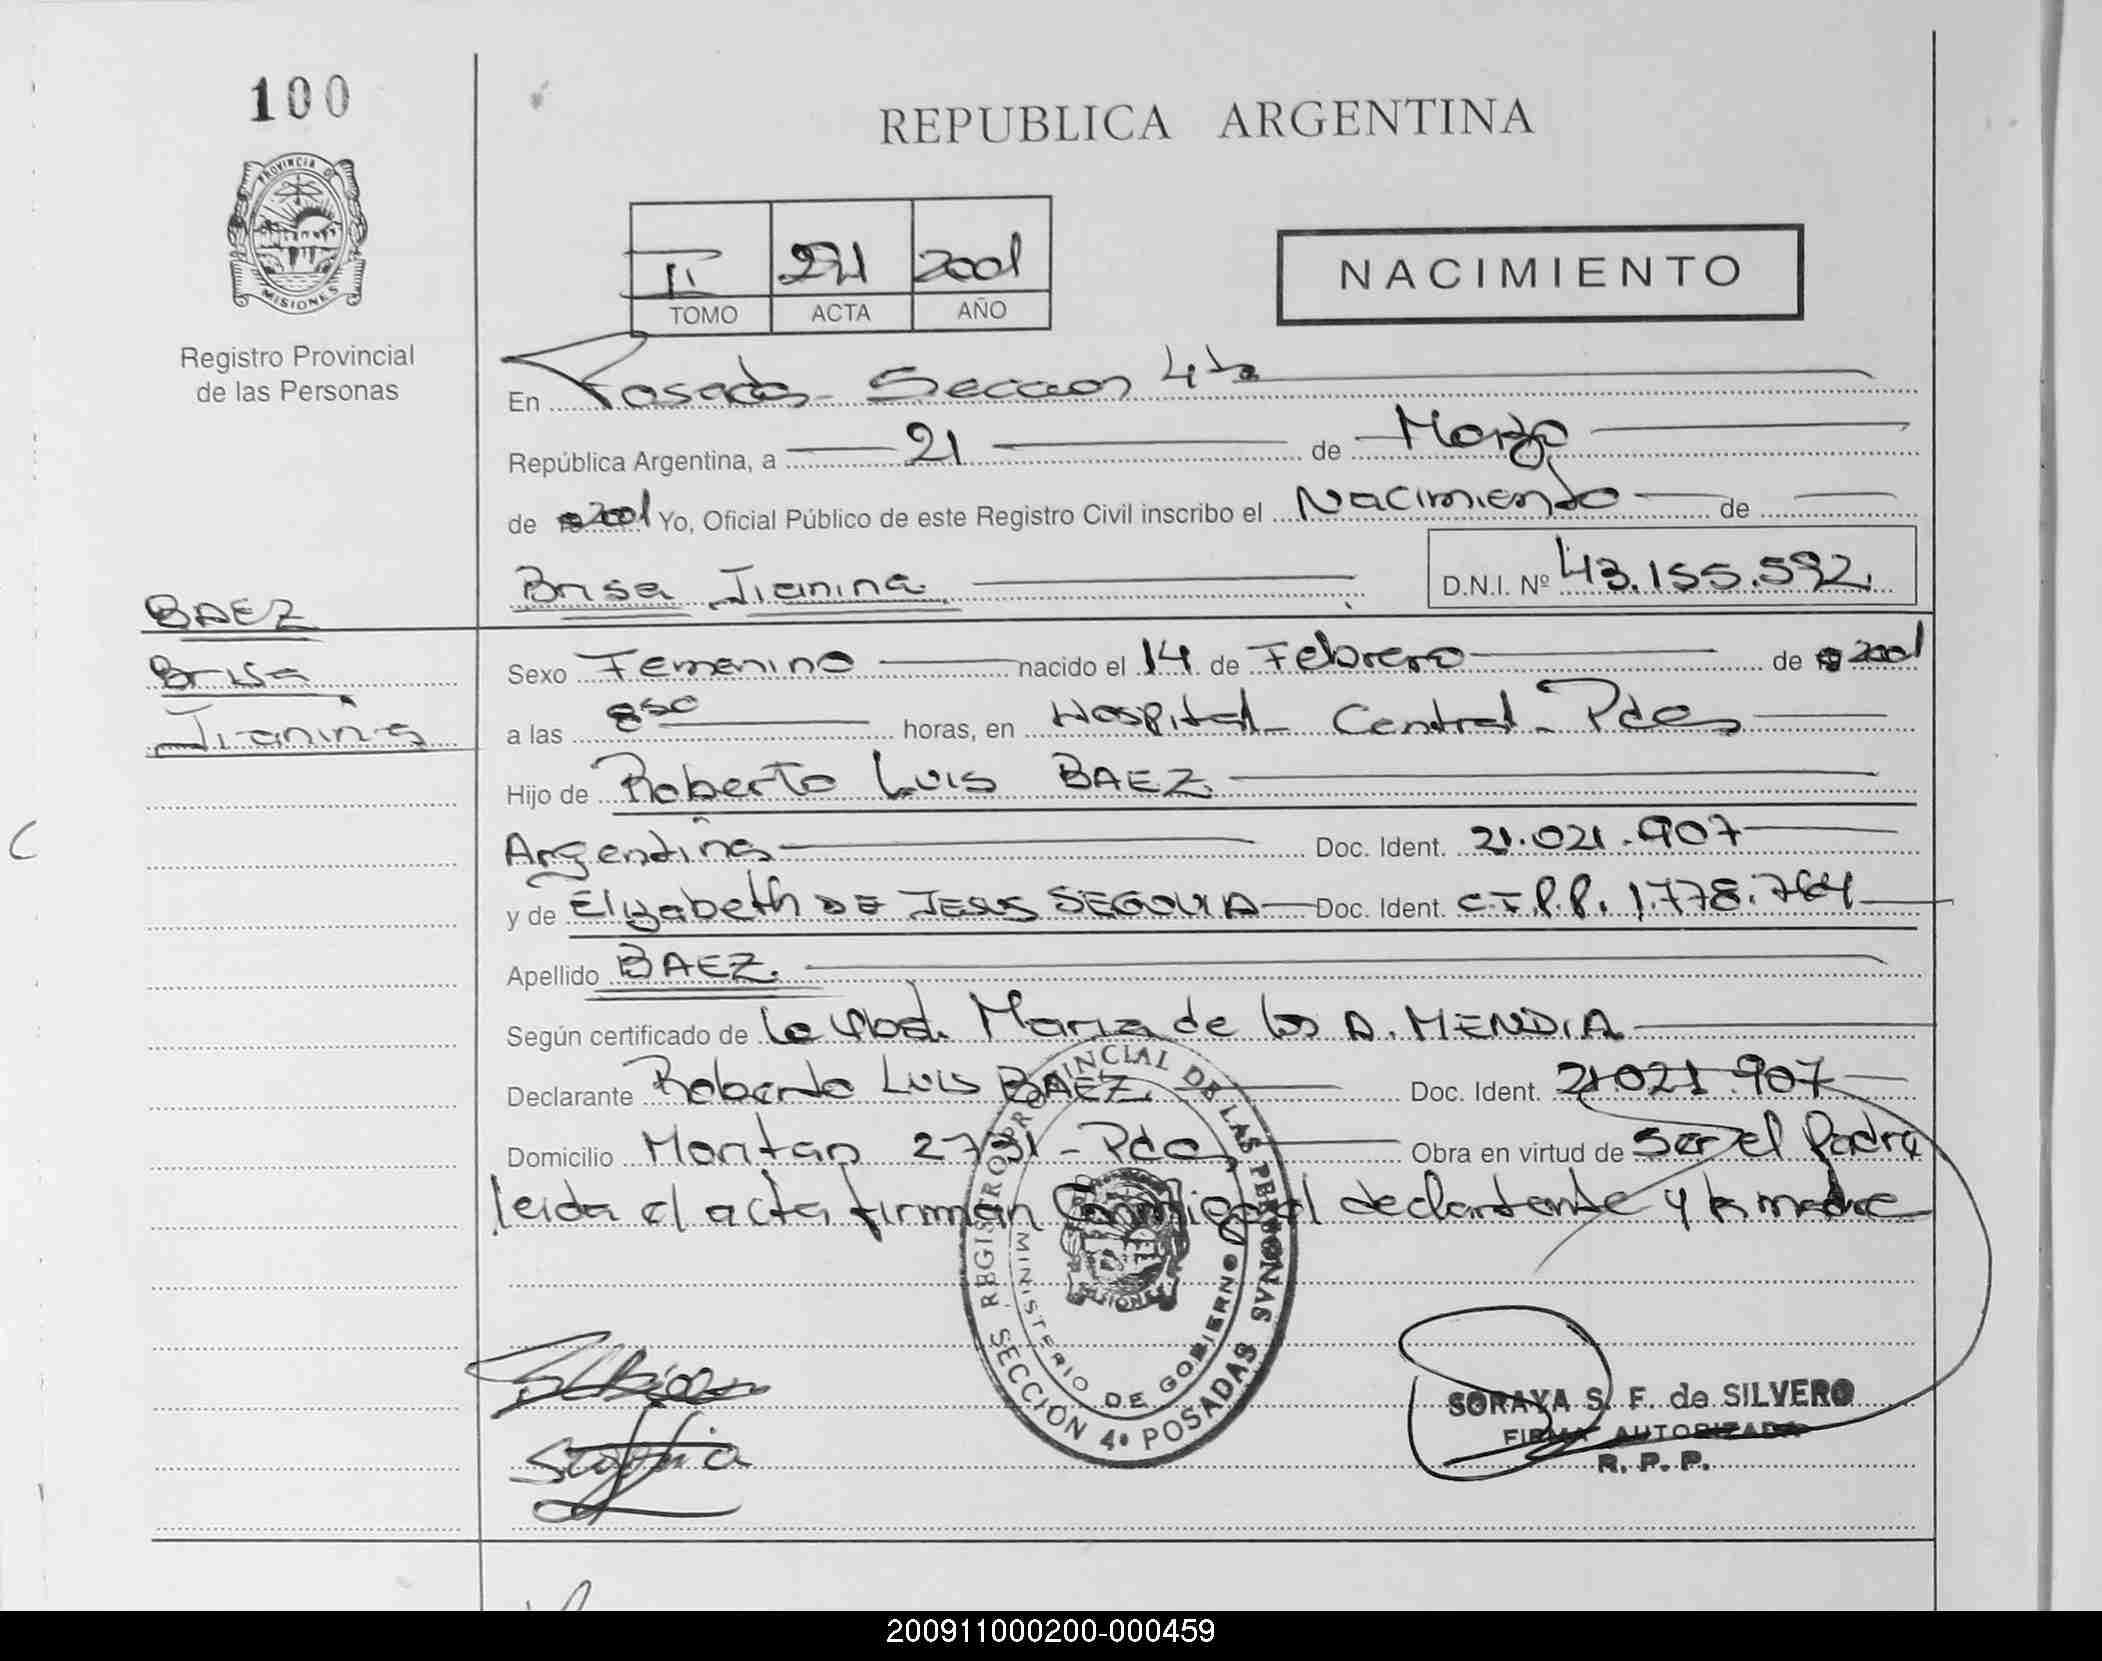 100
REPUBLICA ARGENTINA
PROVINCIA DE
MISIONES
Registro Provincial
de las Personas
II 271 2001
TOMO ACTA AÑO
NACIMIENTO
En Posadas - Seccion 4ta
República Argentina, a 21 de Marzo
de 2001 Yo, Oficial Público de este Registro Civil inscribo el Nacimiento de
Brisa Jianina. D.N.I. Nº 43.155.592.
BAEZ
Brisa
Jianina
Sexo Femenino nacido el 14 de Febrero de 2001
a las 850 horas, en Hospital Central - Pdas
Hijo de Roberto Luis BAEZ.
Argentina Doc. Ident. 21.021.907
y de Elizabeth DE JESUS SEGOVIA Doc. Ident. C.I.P.P. 1.778.764
Apellido BAEZ.
Según certificado de la Obst. Maria de los A. MENDIA
Declarante Roberto Luis BAEZ Doc. Ident. 21021.907
Domicilio 2731 - Pdas Obra en virtud de Ser el Padre
leida el acta firman Conmigo el declarante y la madre
REGISTRO PROVINCIAL DE LAS PERSONAS
MINISTERIO DE GOBIERNO
MISIONES
SECCIÓN 4ª POSADAS
SORAYA S. F. de SILVERO
FIRMA AUTORIZADA
R. P. P.
200911000200-000459